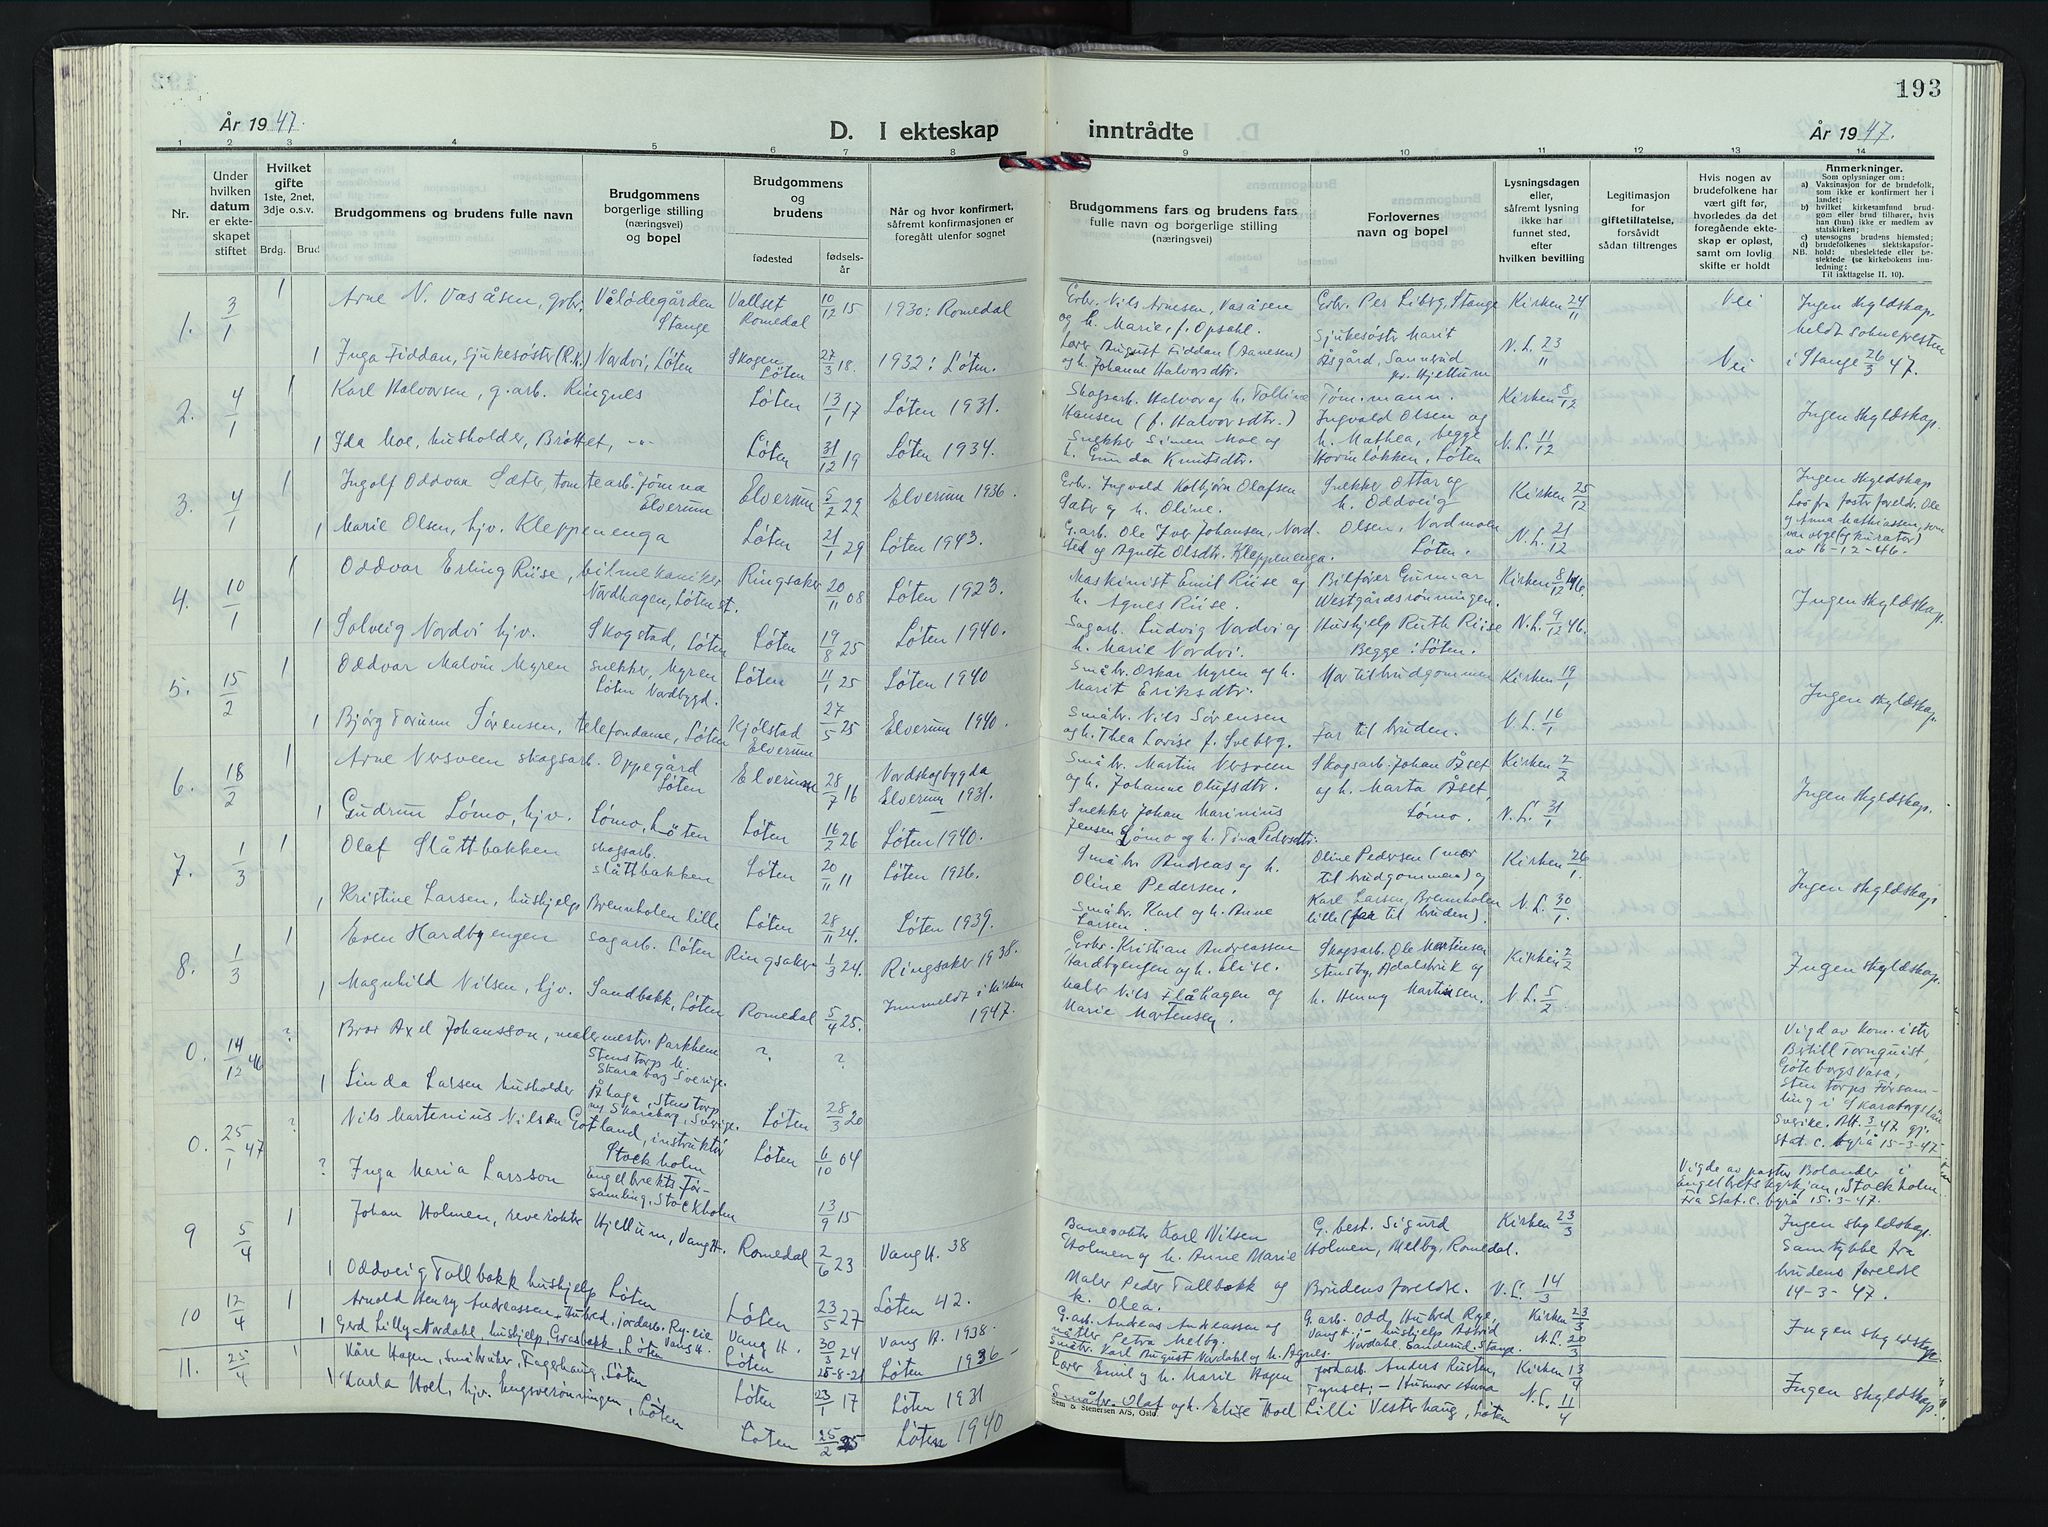 193
År 1947.
D. I ekteskap inntrådte
År 1947.
1 2 3 4 5 6 7 8 9 10 11 12 13 14
Nr.
Under hvilken datum er ekteskapet stiftet
Hvilket gifte 1ste, 2net, 3dje o.s.v.
Brdg. Brud
Brudgommens og brudens fulle navn
Brudgommens borgerlige stilling (næringsvei) og bopel
Brudgommens og brudens
fødested
fødsels-år
Når og hvor konfirmert, såfremt konfirmasjonen er foregått utenfor sognet
Brudgommens fars og brudens fars fulle navn og borgerlige stilling (næringsvei)
Forlovernes navn og bopel
Lysningsdagen eller, såfremt lysning ikke har funnet sted, efter hvilken bevilling
Legitimasjon for giftetillatelse, forsåvidt sådan tiltrenges
Hvis nogen av brudefolkene har vært gift før, hvorledes da det foregående ekteskap er opløst, samt om lovlig skifte er holdt
Anmerkninger.
Som oplysninger om:
a) Vaksinasjon for de brudefolk, som ikke er konfirmert her i landet;
b) hvilket kirkesamfund brudgom eller brud tilhører, hvis han (hun) ikke er medlem av statskirken;
c) utensogns brudens hjemsted;
d) brudefolkenes slektskapsforhold: ubeslektede eller beslektede (se kirkebokens innledning:
NB. Til iakttagelse II, 10).
1. 3/1 1 Arne N. Vasåsen, gbr. Vålødegården Stange Vallset Romedal 10/12 15 1930: Romedal
Gbr. Nils Arnesen, Vasåsen og h. Marie, f. Opsahl. Gbr. Per Libsg, Stange Kirken 24/11 Nei Ingen skyldskap.
1 Inga Fiddan, sjukesøstr (R.K.) Nordvi, Løten Skogen Løten 27/3 18. 1932: Løten.
August Fiddan (Aanesen) og h. Johanne Halvorsdtr. Sjukesøstr Marit Åsgård, Sannrud pr. Hjellum N.L. 23/11 Nei meldt soknepresten i Stange 26/3 47.
2. 4/1 1 Karl Halvorsen, g.arb. Ringnes Løten 13/1 17 Løten 1931.
Skogsarb. Halvor og h. Tolline Hansen (f. Halvorsdtr.) Tøm.mann. Ingvald Olsen og Kirken 8/12 Ingen skyldskap.
1 Ida Moe, husholder, Brøttet, -"- Løten 31/12 19 Løten 1934.
Snekker Simen Moe og h. Gunda Knutsdtr. h. Mathea, begge Hornløkken, Løten N.L. 11/12
3. 4/1 1 Ingolf Oddvar Sæter, tomtearb. Jømna Elverum Elverum 5/2 22 Elverum 1936.
Gbr. Ingvald Kolbjørn Olafsen Sæter og h. Oline. Snekker Ottar og h. Oddveig Kirken 25/12 Ingen skyldskap
1 Marie Olsen, hjv. Kleppenenga Løten 21/1 29 Løten 1943.
G.arb. Ole Iver Johansen, Nordsted og Agnete Olsdtr. Kleppenenga. Olsen, Nordmoen Løten. N.L. 21/12 Lov fra foster foreldr. Ole og Anna Mathiassen, som var verge (og kurator) av 16-12-46.
4. 10/1 1 Oddvar Erling Riise, bilmekaniker Nordhagen, Løten st. Ringsaker 20/11 08 Løten 1923.
Maskinist Emil Riise og h. Agnes Riise. Bilfører Gunnar Westgårdsrønningen. Kirken 8/12 46. Ingen skyldskap.
1 Solveig Nordvi hjv. Skogstad, Løten Løten 19/8 25 Løten 1940.
Sagarb. Ludvig Nordvi og h. Marie Nordvi. Hushjelp Ruth Riise Begge i Løten. N.L. 9/12 46.
5. 15/2 1 Oddvar Malvin Myren snekker, Myren Løten Nordbygd. Løten 11/1 25 Løten 1940
Småbr. Oskar Myren og h. Marit Eriksdtr. Mor til brudgommen Kirken 19/1 Ingen skyldskap.
1 Bjørg Torunn Sørensen, telefondame, Løten Kjølstad Elverum 27/5 25 Elverum 1940.
Småbr. Nils Sørensen og h. Thea Lovise f. Sveberg. Far til bruden. N.L. 16/1
6. 18/2 1 Arne Nersveen skogsarb. Oppegård Løten Elverum 28/7 16 Nordskogbygda Elverum 1931.
Småbr. Martin Nersveen og h. Johanne Olufsdtr. Skogsarb. Johan Åset og h. Marta Åset, Kirken 2/2 Ingen skyldskap.
1 Gudrun Lømo, hjv. Lømo, Løten Løten 16/2 26 Løten 1940.
Snekker Johan Marinius Jensen Lømo og h. Tina Pedersdtr. Lømo. N.L. 31/1
7. 1/3 1 Olaf Slåttbakken skogsarb. Slåttbakken Løten 20/11 11 Løten 1926.
Småbr. Andreas og h. Oline Pedersen. Oline Pedersen (mor til brudgommen) og Kirken 26/1. Ingen skyldskap
1 Kristine Larsen, hushjelp Brennholen lille Løten 28/11 24. Løten 1939.
Småbr. Karl og h. Anne Larsen. Karl Larsen, Brennholen lille (far til bruden). N.L. 30/1.
8. 1/3 1 Even Hardbyengen sagarb. Løten Ringsaker 1/3 24. Ringsaker 1938.
Gbr. Kristian Andreassen Hardbyengen og h. Elise. Skogsarb. Ole Martinsen Stensby, Adalsbruk og Kirken 2/2 Ingen skyldskap.
1 Magnhild Nilsen, hjv. Sandbakk, Løten Romedal 5/4 25. Innmeldt i kirken 1947.
Maler Nils Flåhagen og Marie Mortensen. h. Henny Martinsen. N.L. 5/2
0. 14/12 46 ? Bror Axel Johansson, malermestr. Parkhem Stenstorp h. Skaraborg Sverige. ? ?
1 Linda Larsen husholder Åhaga, Stenstorp ny Skaraborg, Sverige. Løten 28/3 20
Vigd av kom.istr Bertill Tornquist, Göteborgs Vasa, Stentorps Församling i Skaraborgs län Sverike. Att. 3/1 47. gj. Stat. C. byrå 15-3-47.
0. 25/1 47 ? Nils Martenius Nilsen Gotland, instruktør Stockholm Løten 6/10 04
? Inga Maria Larsson Engelbrekts Församling, Stockholm 13/9 15
Vigde av pastor Bolander i Engelbrekts kyrkjan, Stockholm Fra Stat. C. byrå 15-3-47.
9 5/4 1 Johan Holmen, reverøkter Hjellum, Vang H. Romedal 2/6 23 Vang H. 38
Banevokter Karl Nilsen Holmen og h. Anne Marie G. best. Sigurd Holmen, Melby, Romedal. Kirken 23/3 Ingen skyldskap. Samtykke fra brudens foreldre 14-3-47.
1 Oddveig Tallbakk hushjelp Løten Løten 23/5 27 Løten 42.
Maler Peder Tallbakk og h. Olea. Brudens foreldre. N.L. 14/3
10 12/4 1 Arnold Henry Andreassen Hubred, jordarb. Rogneie Vang H. Vang H. 30/3 24 Vang H. 1938.
G.arb. Andreas Andreassen og Petra Melby. G.arb. Odd Hubred Rye, Vang H. Kirken 23/3 Ingen skyldskap
1 Gerd Lilly Nordahl, hushjelp, Grasbakk, Løten Løten 25-8-21 Løten 1936
Småbr. Karl August Nordahl og h. Agnes. - hushjelp Astrid Nordahl, Sanderud, Stange N.L. 20/3
11. 25/4 1 Kåre Hagen, Småbruker, Fagerhaug, Løten Løten 23/1 17 Løten 1931
Emil og h. Marie Hagen jordarb. Anders Rusten, Tynset, Kirken 13/4 Ingen skyldskap.
1 Karla Hoel, hjv. Engsverønningen, Løten Løten 25/2 25 Løten 1940
Småbr. Olaf og h. Elise Hoel - Husmor Anna Lilli Vesterhaug, Løten N.L. 11/4
Sem & Stenersen A/S, Oslo.